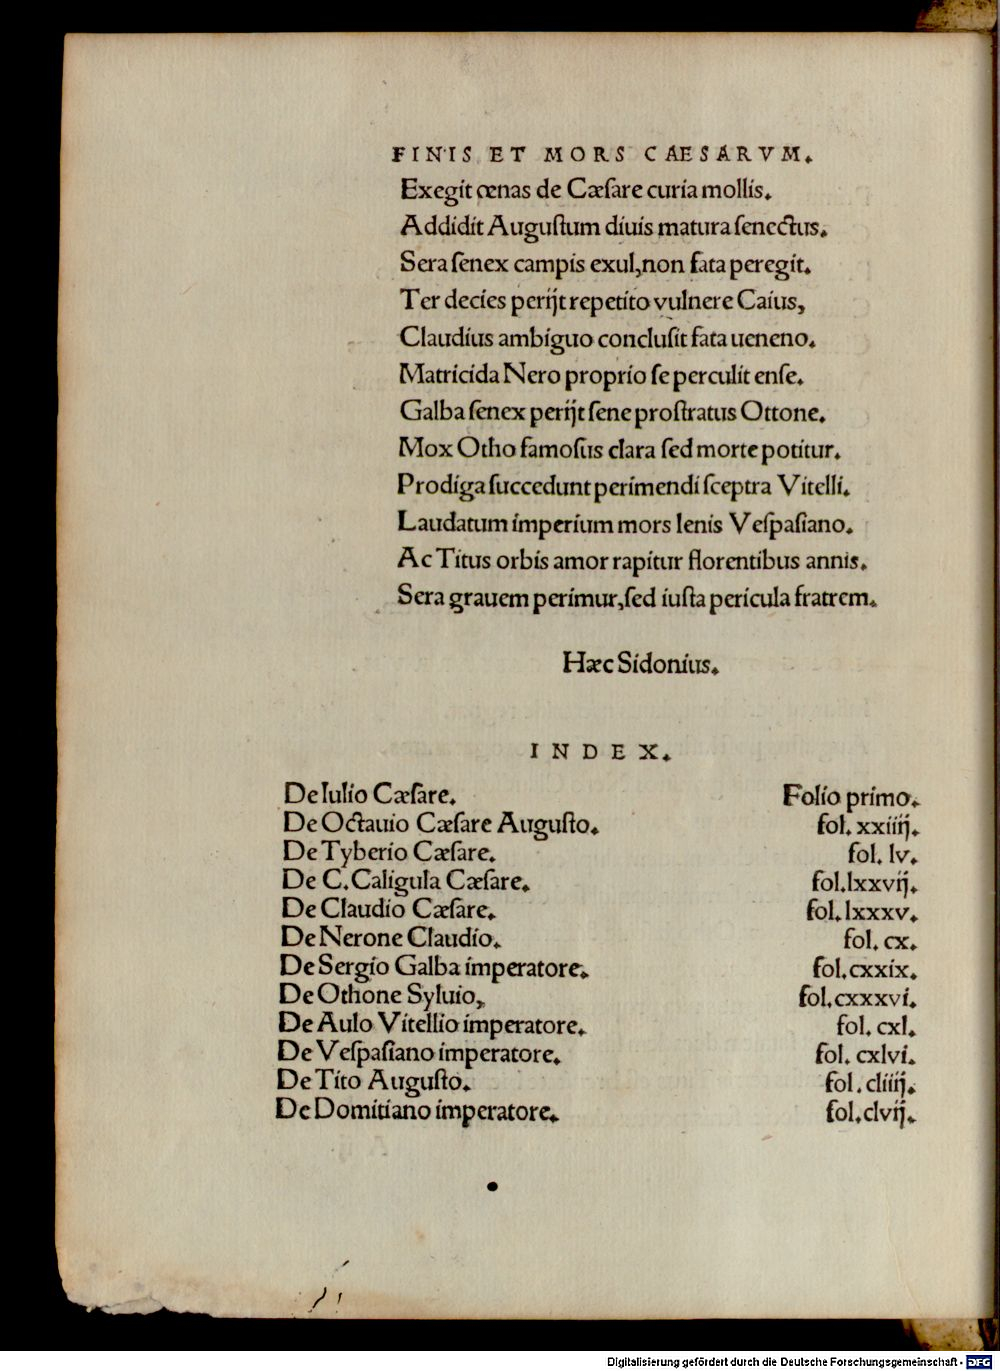 FINIS ET MORS CAESARVM.
Exegit œnas de Cæſare curia mollis.
Addidit Auguſtum diuis matura ſenectus.
Sera ſenex campis exul,non fata peregit.
Ter decies perijt repetito vulnere Caius,
Claudius ambiguo concluſit fata ueneno.
Matricida Nero proprio ſe perculit enſe.
Galba ſenex perijt ſene proſtratus Ottone.
Mox Otho famoſus clara ſed morte potitur.
Prodiga ſuccedunt perimendi ſceptra Vitelli.
Laudatum imperium mors lenis Veſpaſiano.
Ac Titus orbis amor rapitur florentibus annis.
Sera grauem perimur,ſed iuſta pericula fratrem.
Hæc Sidonius.
INDEX.
De Iulio Cæſare. Folio primo.
De Octauio Cæſare Auguſto. fol. xxiiij.
De Tyberio Cæſare. fol. lv.
De C. Caligula Cæſare. fol.lxxvij.
De Claudio Cæſare. fol.lxxxv.
De Nerone Claudio. fol. cx.
De Sergio Galba imperatore. fol.cxxix.
De Othone Syluio, fol.cxxxvi.
De Aulo Vitellio imperatore. fol. cxl.
De Veſpaſiano imperatore. fol. cxlvi.
De Tito Auguſto. fol. cliiij.
De Domitiano imperatore. fol.clvij.
Digitalisierung gefördert durch die Deutsche Forschungsgemeinschaft - DFG